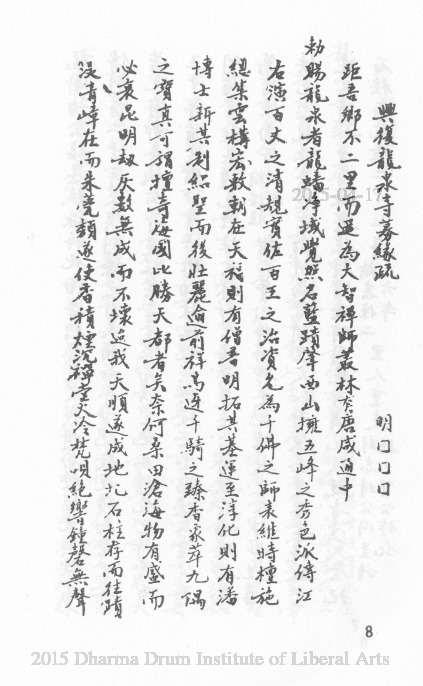 興復龍泉寺募緣疏
明口口口
距吾鄉不二里而遥為大智禪師叢林奕唐咸通中
勅賜龍泉者龍蟠淨域覺照名藍蹟肇西山擁五峰之秀色派傳江
右演百丈之清規實佐百王之治資允為千佛之師表維時檀施
總集雲構宏敷朝在天禧則有僧善明拓其基運至淳化則有潘
博士新其刹紹聖而後壯麗逾前祥馬迎千騎之臻香象萃九隅
之寶真可謂檀壽海國比勝天都者矣奈何桑田滄海物有盛而
必衰昆明刼灰數無成而不壞迨我天順遂成地圮石柱存而往蹟
没青嶂在而朱甍頹遂使香積煙沉禪堂火冷梵唄絶響鐘磬無聲
8
2015-04-17
2015 Dharma Drum Institute of Liberal Arts